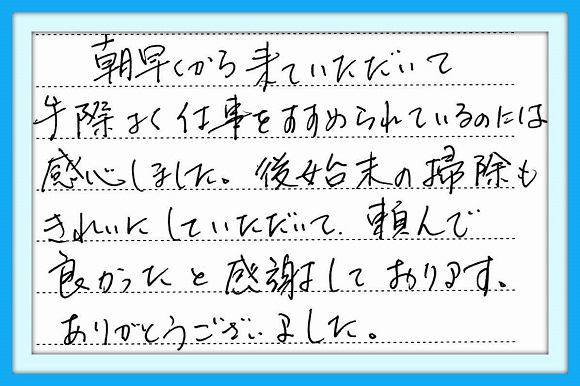 朝早くから来ていただいて
手際よく仕事をすすめられているのには
感心しました。後始末の掃除も
きれいにしていただいて、頼んで
良かったと感謝しております。
ありがとうございました。